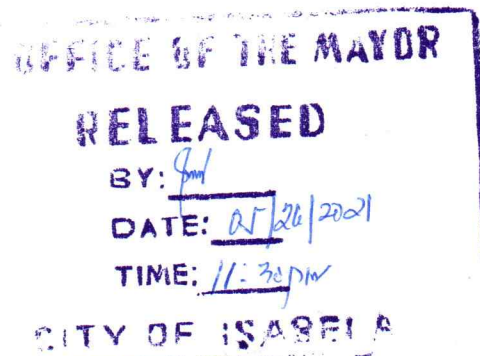 OFFICE OF THE MAYOR
RELEASED
BY:
DATE: 05/26/2021
TIME: 11:30pm
CITY OF ISABELA